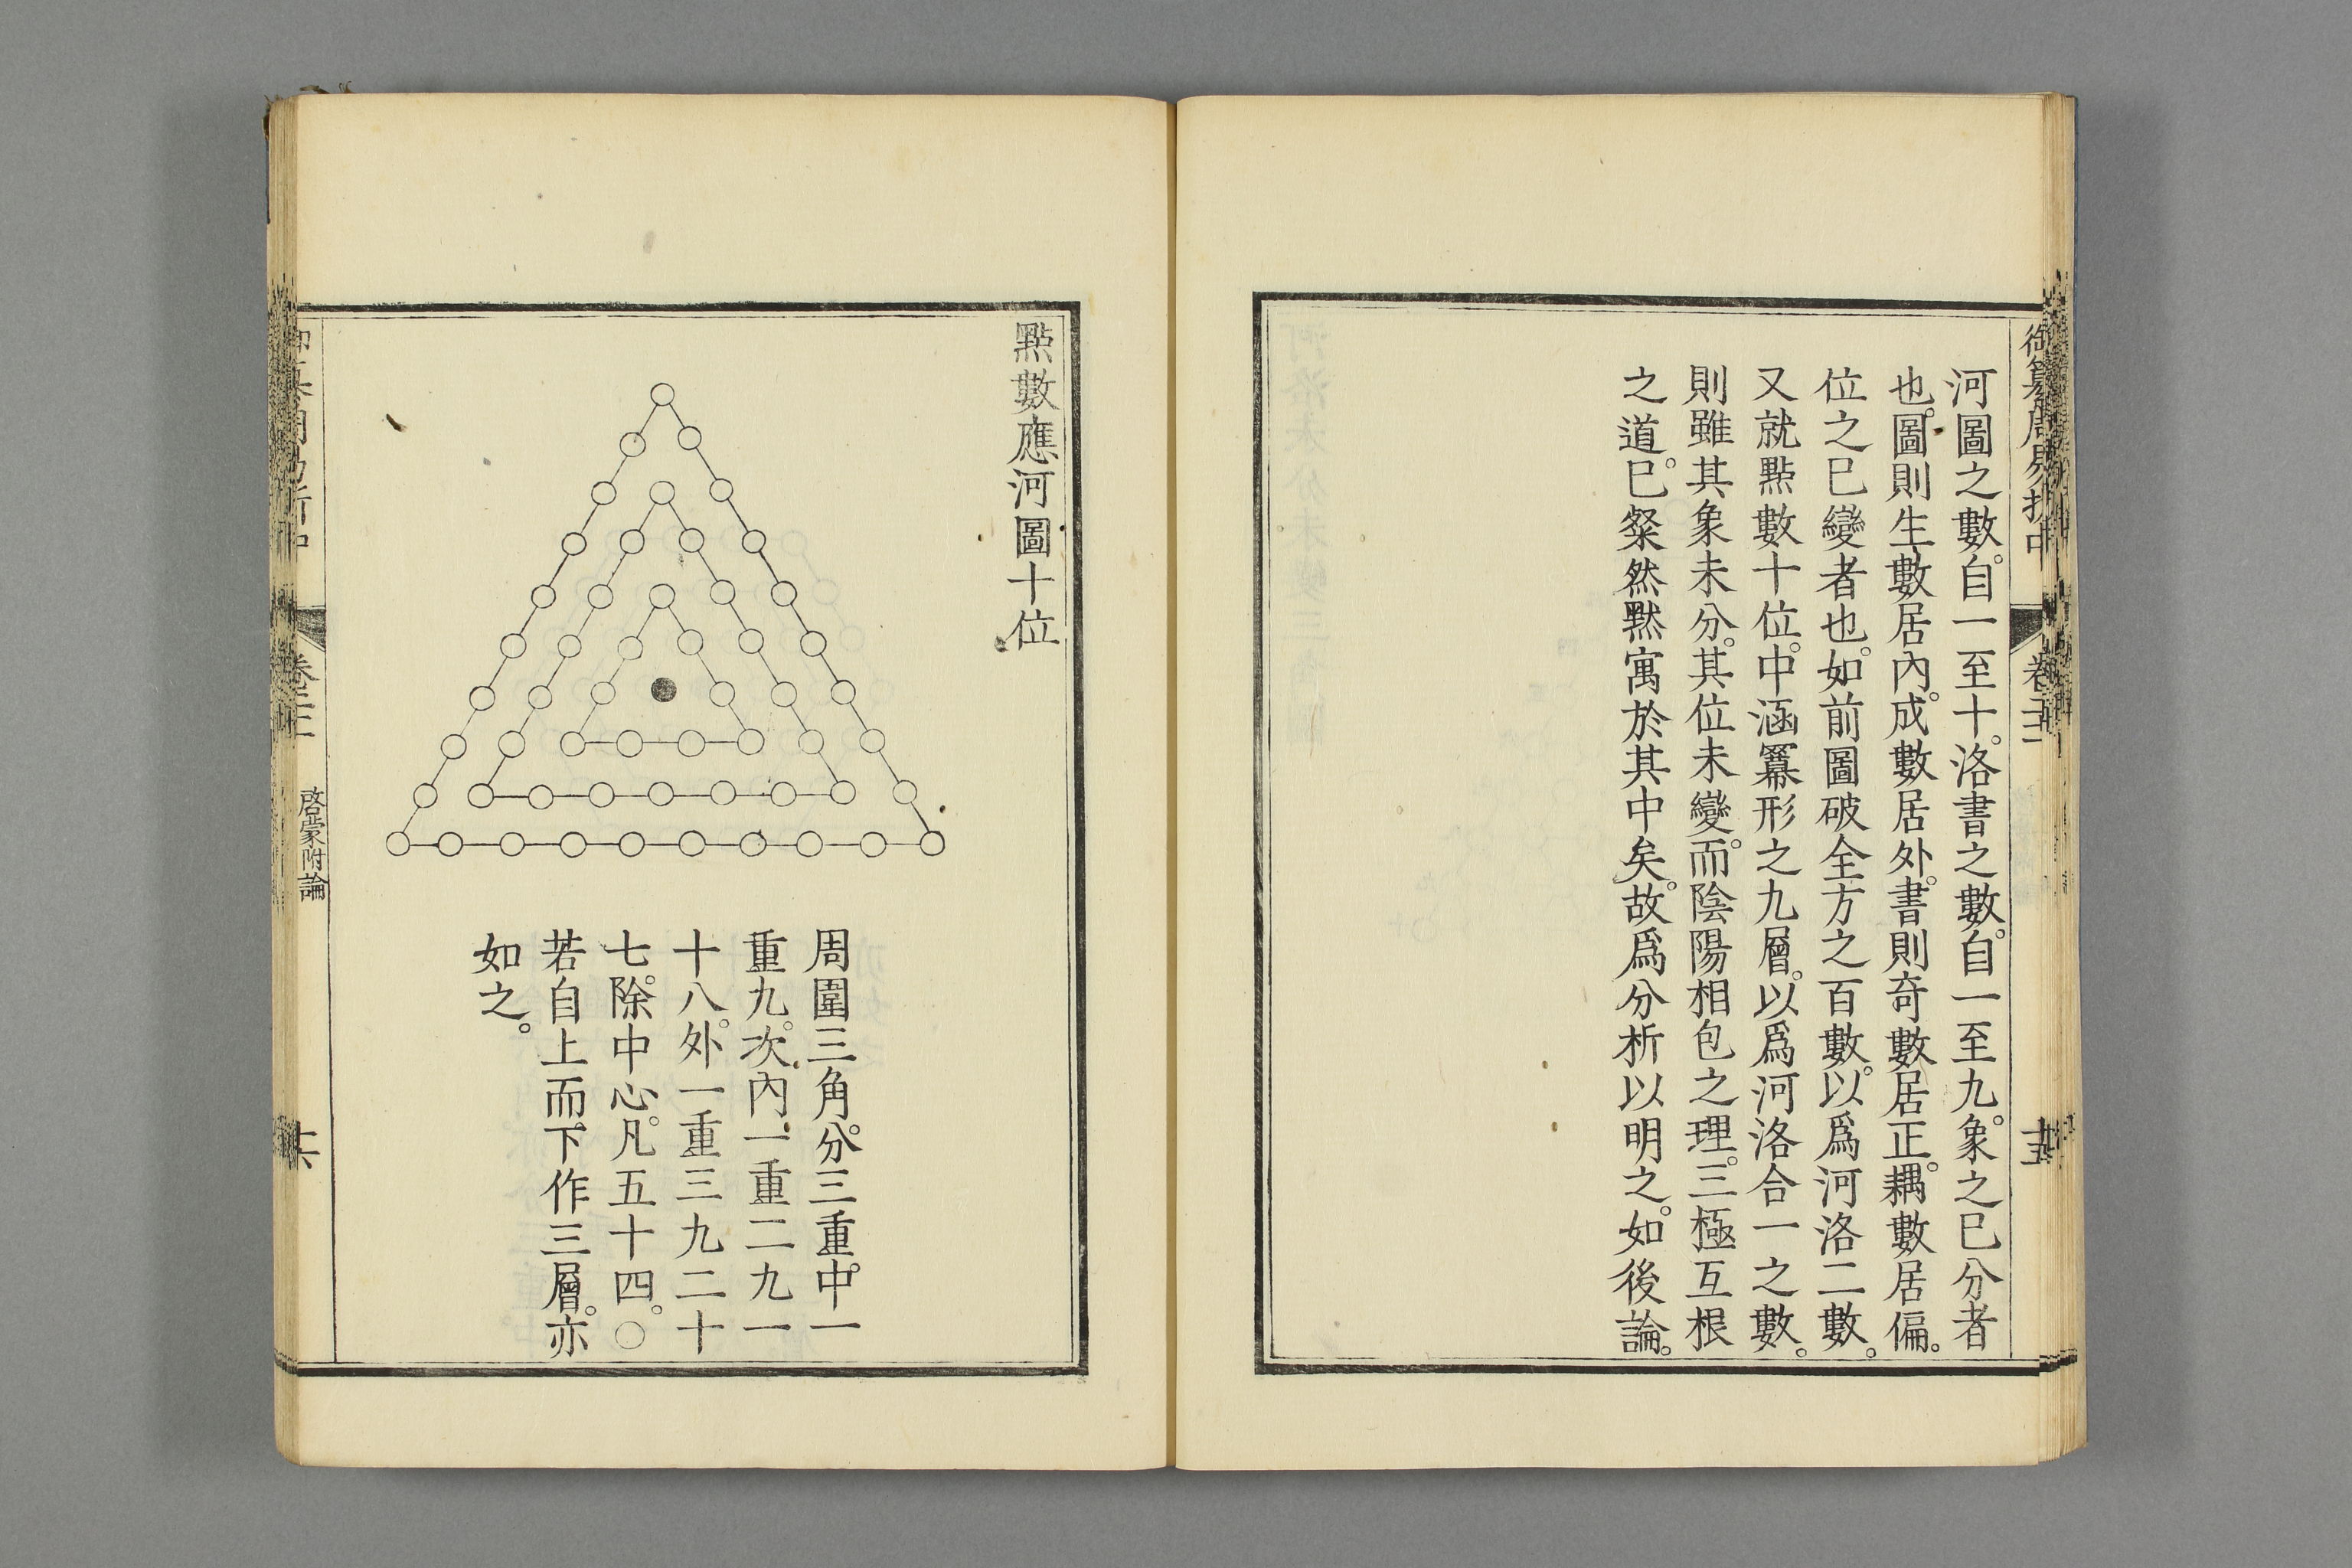 御纂周易折中
卷二十一
十五
河圖之數。自一至十。洛書之數。自一至九。象之已分者
也。圖則生數居內。成數居外。書則奇數居正。耦數居偏。
位之已變者也。如前圖破全方之百數。以爲河洛二數。
又就點數十位。中涵羃形之九層。以爲河洛合一之數。
則雖其象未分。其位未變。而陰陽相包之理。三極互根
之道。已粲然默寓於其中矣。故爲分析以明之。如後論。
點數應河圖十位
周圍三角。分三重。中一
重九。次內一重二九一
十八。外一重三九二十
七。除中心。凡五十四。○
若自上而下作三層。亦
如之。
啓蒙附論